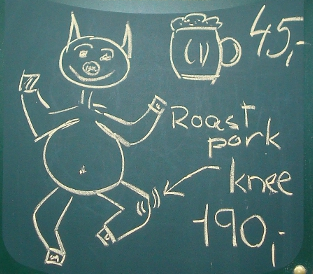 45,-
Roast
pork
knee
190,-